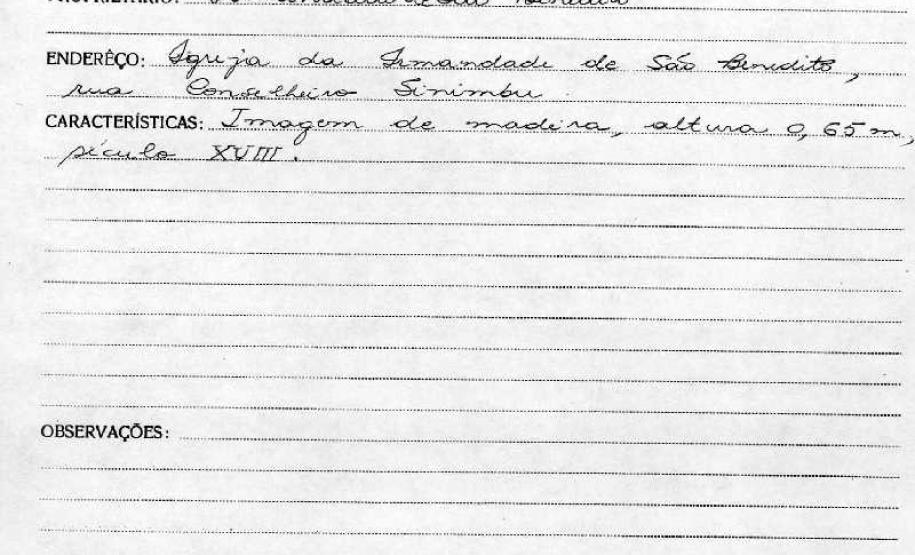 ENDERÊÇO: Igreja da Irmandade de São Benedito,
rua Conselheiro Sinimbu.
CARACTERÍSTICAS: Imagem de madeira, altura 0,65 m,
século XVIII.
OBSERVAÇÕES: